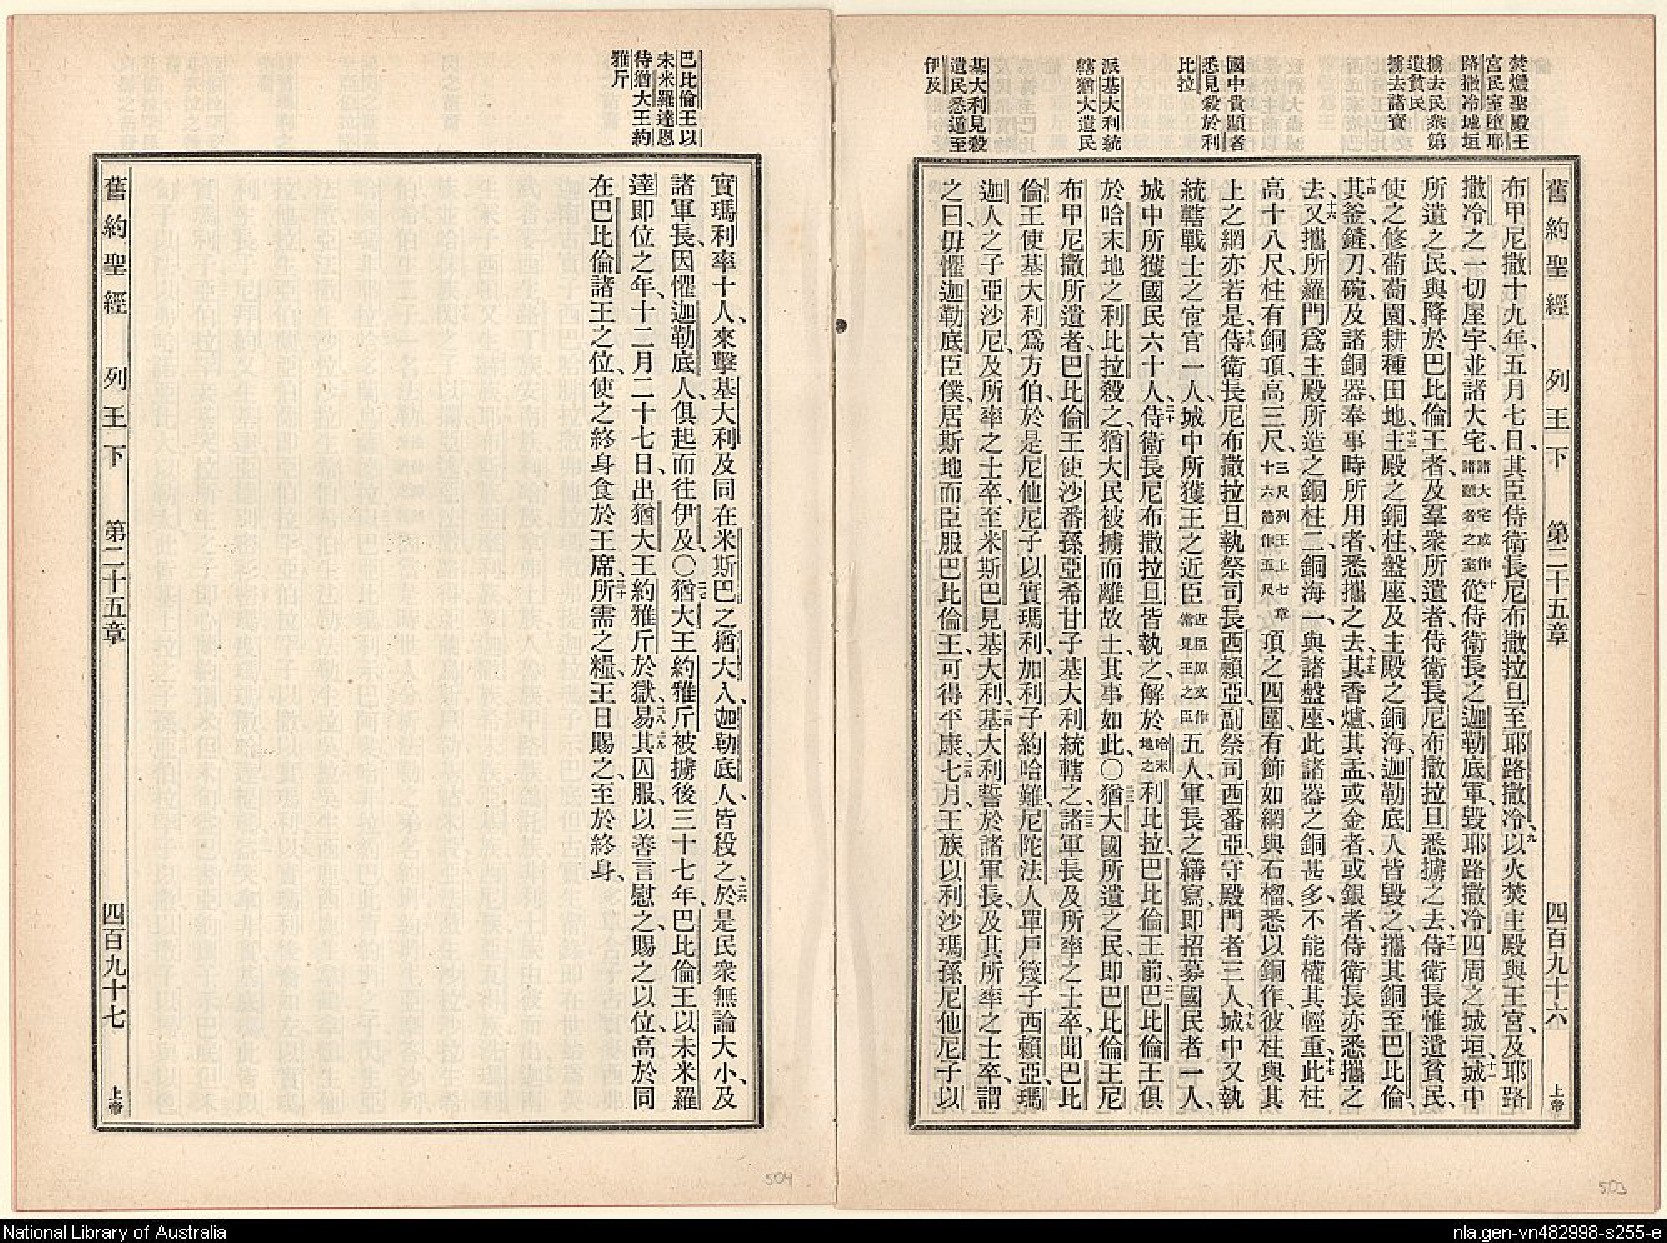 焚燬聖殿王
宮民室墮耶
路撒冷城垣
擄去民衆第
遺貧民
擄去諸寶
國中貴顯者
悉見殺於利
比拉
派基大利統
轄猶大遺民
基大利見殺
遺民悉遁至
伊及
舊約聖經 列王下 第二十五章 四百九十六 上帝
布甲尼撒十九年、五月七日、其臣侍衛長尼布撒拉旦至耶路撒冷、九以火焚主殿與王宮、及耶路
撒冷之一切屋宇、並諸大宅、諸大宅或作諸顯者之室十從侍衛長之迦勒底軍、毀耶路撒冷四周之城垣、十一城中
所遺之民、與降於巴比倫王者、及羣衆所遺者、侍衛長尼布撒拉旦悉擄之去、十二侍衛長惟遺貧民、
使之修葡萄園、耕種田地、十三主殿之銅柱、盤座、及主殿之銅海、迦勒底人皆毀之、攜其銅至巴比倫、
十四其釜、鏟、刀、碗、及諸銅器、奉事時所用者、悉攜之去、十五其香爐、其盂、或金者、或銀者、侍衛長亦悉攜之
去、十六又攜所羅門爲主殿所造之銅柱二、銅海一、與諸盤座、此諸器之銅甚多、不能權其輕重、十七此柱
高十八尺、柱有銅頂、高三尺、三尺列王上七章十六節作五尺頂之四圍、有飾如網與石榴、悉以銅作、彼柱與其
上之網亦若是、十八侍衛長尼布撒拉旦執祭司長西賴亞、副祭司西番亞、守殿門者三人、十九城中又執
統轄戰士之宦官一人、城中所獲王之近臣近臣原文作常見王之臣五人、軍長之繕寫、卽招募國民者一人、
城中所獲國民六十人、二十侍衛長尼布撒拉旦皆執之、解於哈末地之利比拉、巴比倫王前、二一巴比倫王俱
於哈末地之利比拉殺之、猶大民被擄而離故土、其事如此、○二二猶大國所遺之民、卽巴比倫王尼
布甲尼撒所遺者、巴比倫王使沙番孫亞希甘子基大利統轄之、二三諸軍長及所率之士卒、聞巴比
倫王使基大利爲方伯、於是尼他尼子以實瑪利、加利子約哈難、尼陀法人單戶篾子西賴亞、瑪
迦人之子亞沙尼、及所率之士卒、至米斯巴見基大利、二四基大利誓於諸軍長及其所率之士卒、謂
之曰、毋懼迦勒底臣僕、居斯地而臣服巴比倫王、可得平康、二五七月、王族以利沙瑪孫尼他尼子以
巴比倫王以
未米羅達恩
待猶大王約
雅斤
實瑪利率十人、來擊基大利、及同在米斯巴之猶大人、迦勒底人、皆殺之、二六於是民衆無論大小、及
諸軍長、因懼迦勒底人、俱起而往伊及、○二七猶大王約雅斤被擄後三十七年、巴比倫王以未米羅
達卽位之年、十二月二十七日、出猶大王約雅斤於獄、二八易其囚服、二九以善言慰之、賜之以位、高於同
在巴比倫諸王之位、使之終身食於王席、三十所需之糧、王日賜之、至於終身、
舊約聖經 列王下 第二十五章 四百九十七 上帝
504
503
National Library of Australia
nla.gen-vn482998-s255-e